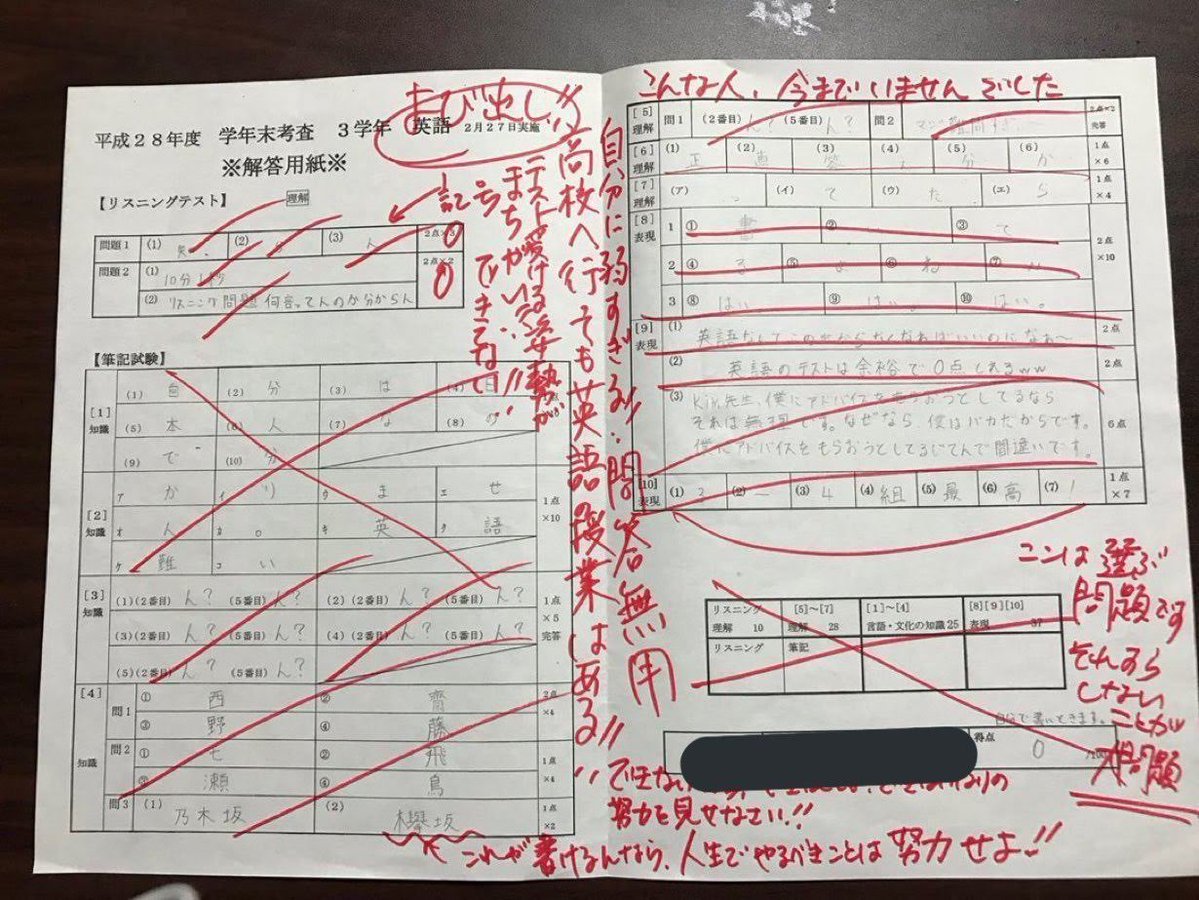 よび出し!!
平成28年度 学年末考査 3学年 英語 2月27日実施
※解答用紙※
【リスニングテスト】 理解
問題1 (1) 笑、 (2) (3) ん 2点×3 0
問題2 (1) 10分1秒 2点×2 0
(2) リスニング問題何言ってんのか分からん
記号
テスト受ける姿勢が
まちがいすぎ
できてない!!
高校へ行っても英語の授業はある!!
自分に弱すぎる!!問答無用
【筆記試験】
[1] 知識 (1) 自 (2) 分 (3) は (4) 日
(5) 本 (6) 人 (7) な (8) の
(9) で (10) 分
[2] 知識 ア か イ り ウ ま エ せ 1点×10
オ ん カ 。 キ 英 ク 語
ケ 難 コ い
[3] 知識 (1)(2番目) ん? (5番目) ん? (2)(2番目) ん? (5番目) ん? 1点×5 完答
(3)(2番目) ん? (5番目) ん? (4)(2番目) ん? (5番目) ん?
(5)(2番目) ん? (5番目) ん?
[4] 知識 問1 ① 西 ② 齋 2点×4
③ 野 ④ 藤
問2 ① 七 ② 飛 1点×4
③ 瀬 ④ 鳥
問3 (1) 乃木坂 (2) 欅坂 1点×2
こんな人、今までいませんでした
[5] 理解 問1 (2番目) ん? (5番目) ん? 問2 マジ難問すぎ 2点×2 完答
[6] 理解 (1) 正 (2) 直 (3) 答 (4) え (5) 分 (6) か 1点×6
[7] 理解 (ア) っ (イ) て (ウ) た (エ) ら 1点×4
[8] 表現 1 ① 書 ② ③ て 2点×10
2 ④ る ⑤ よ ⑥ ね ⑦ い
3 ⑧ はい。 ⑨ はい。 ⑩ はい。
[9] 表現 (1) 英語なんてこの世からなくなればいいのになぁ〜 2点
(2) 英語のテストは余裕で0点とれるww 2点
(3) 先生、僕にアドバイスをもらおうとしてるなら
それは無理です。なぜなら 僕はバカだからです。
僕にアドバイスをもらおうとしてるじてんで間違いです。 6点
[10] 表現 (1) 3 (2) ー (3) 4 (4) 組 (5) 最 (6) 高 (7) ! 1点×7
ここは選ぶ
問題です
それすら
しない
ことが
大問題
リスニング 理解 10 [5]〜[7] 理解 28 [1]〜[4] 言語・文化の知識25 [8][9][10] 表現 37
リスニング 筆記
自分で書いときます。
得点 0 /100
できない
なりの
努力を見せなさい!!
これが書けるんなら、人生でやるべきことは努力せよ!!